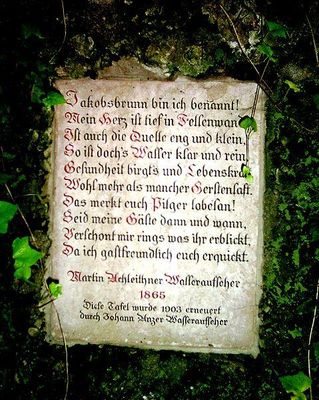 Jakobsbrunn bin ich benannt!
Mein Herz ist tief in Felsenwand
Ist auch die Quelle eng und klein,
So ist doch's Wasser klar und rein,
Gesundheit birgt's und Lebenskraft
Wohl mehr als mancher Gerstensaft.
Das merkt euch Pilger lobesan!
Seid meine Gäste dann und wann,
Verschont mir rings was ihr erblickt,
Da ich gastfreundlich euch erquickt.
Martin Achleithner Wasseraufseher
1865
Diese Tafel wurde 1903 erneuert
durch Johann Anzer Wasseraufseher